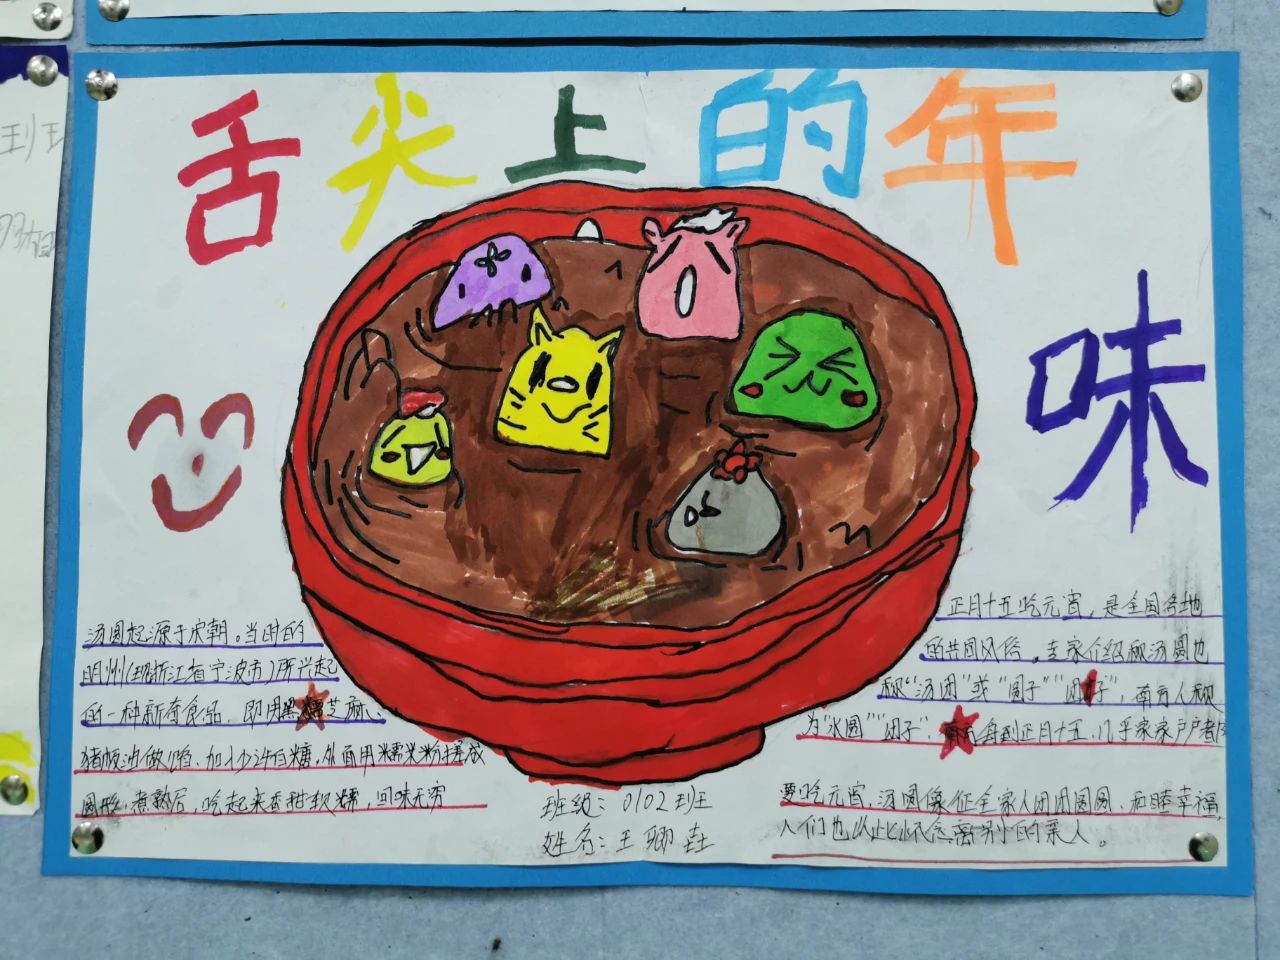 舌尖上的年味
汤圆起源于宋朝。当时的
明州(现浙江省宁波市)所兴起
的一种新奇食品，即用黑芝麻、
猪板油做馅、加少许白糖，外面用糯米粉搓成
圆形，煮熟后，吃起来香甜软糯，回味无穷
班级：0102班
姓名：王卿垚
正月十五吃元宵，是全国各地
的共同风俗。专家介绍称汤圆也
称"汤团"或"圆子""团子"，南方人称
为"水圆""团子"，每到正月十五，几乎家家户户都
要吃元宵，汤圆像征全家人团团圆圆，和睦幸福，
人们也以此怀念离别的亲人。